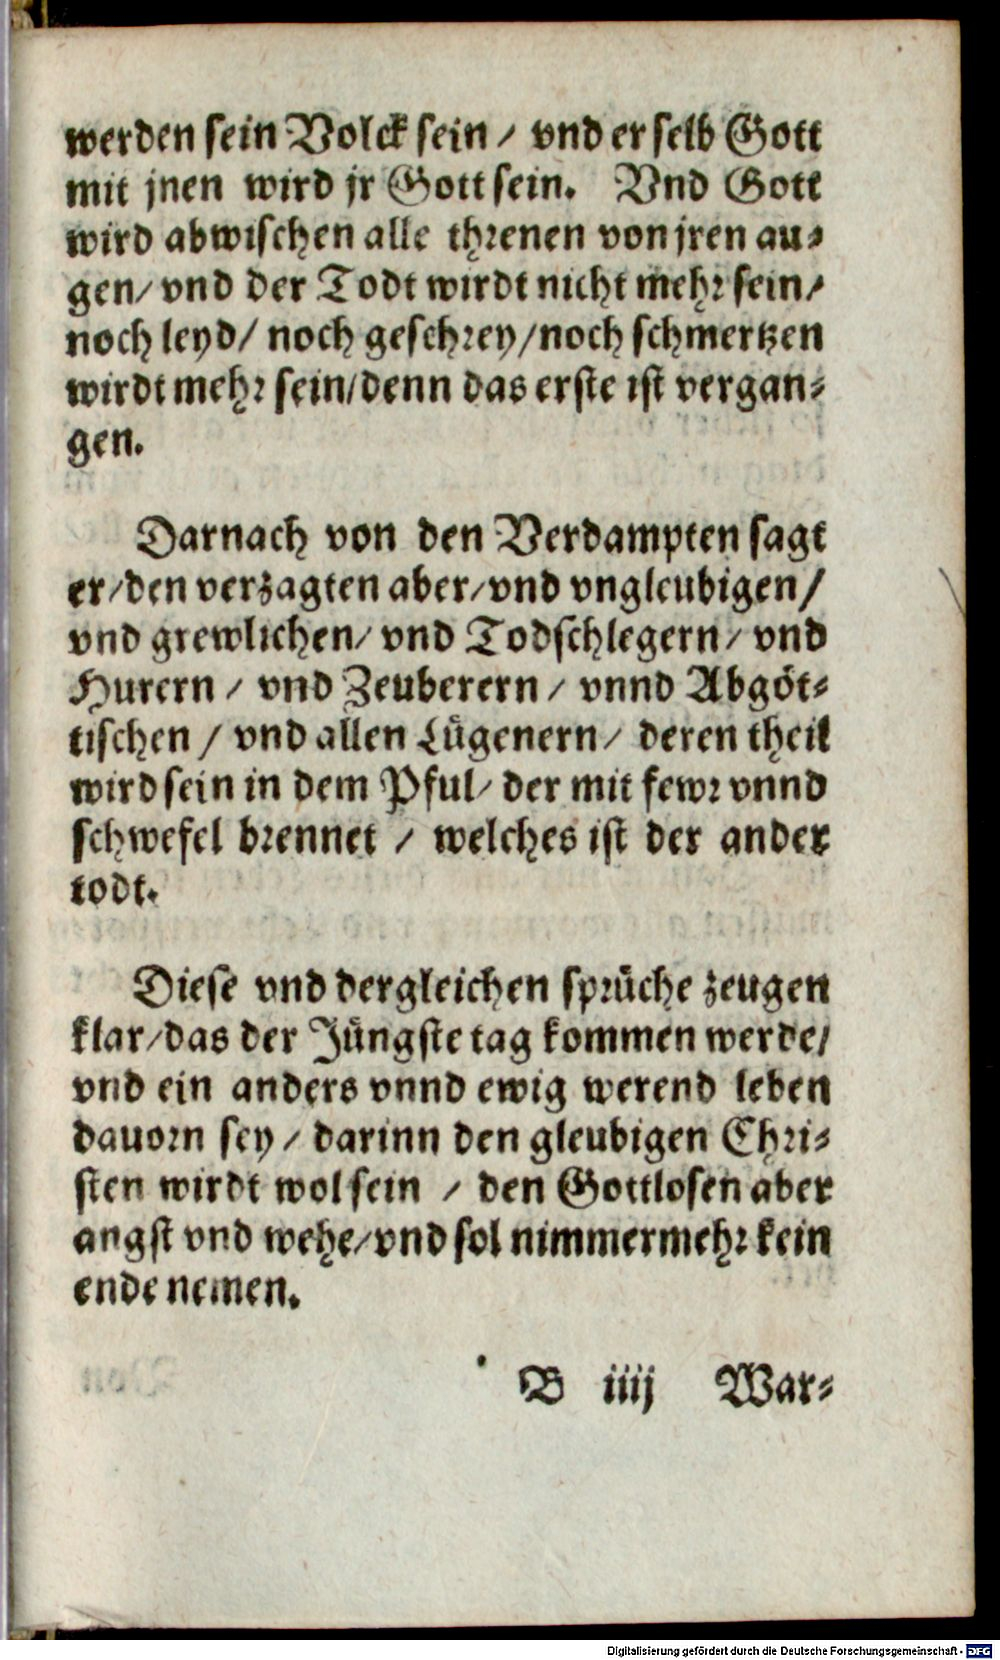 werden sein Volck sein / vnd er selb Gott
mit jnen wird jr Gott sein. Vnd Gott
wird abwischen alle threnen von jren au-
gen/ vnd der Todt wirdt nicht mehr sein/
noch leyd/ noch geschrey/ noch schmertzen
wirdt mehr sein/ denn das erste ist vergan-
gen.
Darnach von den Verdampten sagt
er/ den verzagten aber/ vnd vngleubigen/
vnd grewlichen/ vnd Todschlegern/ vnd
Hurern / vnd Zeuberern / vnnd Abgöt-
tischen / vnd allen Lügenern/ deren theil
wird sein in dem Pful/ der mit fewr vnnd
schwefel brennet / welches ist der ander
todt.
Diese vnd dergleichen sprüche zeugen
klar/ das der Jüngste tag kommen werde/
vnd ein anders vnnd ewig werend leben
dauorn sey / darinn den gleubigen Chri-
sten wirdt wol sein / den Gottlosen aber
angst vnd wehe/ vnd sol nimmermehr kein
ende nemen.
B iiij War-
Digitalisierung gefördert durch die Deutsche Forschungsgemeinschaft - DFG